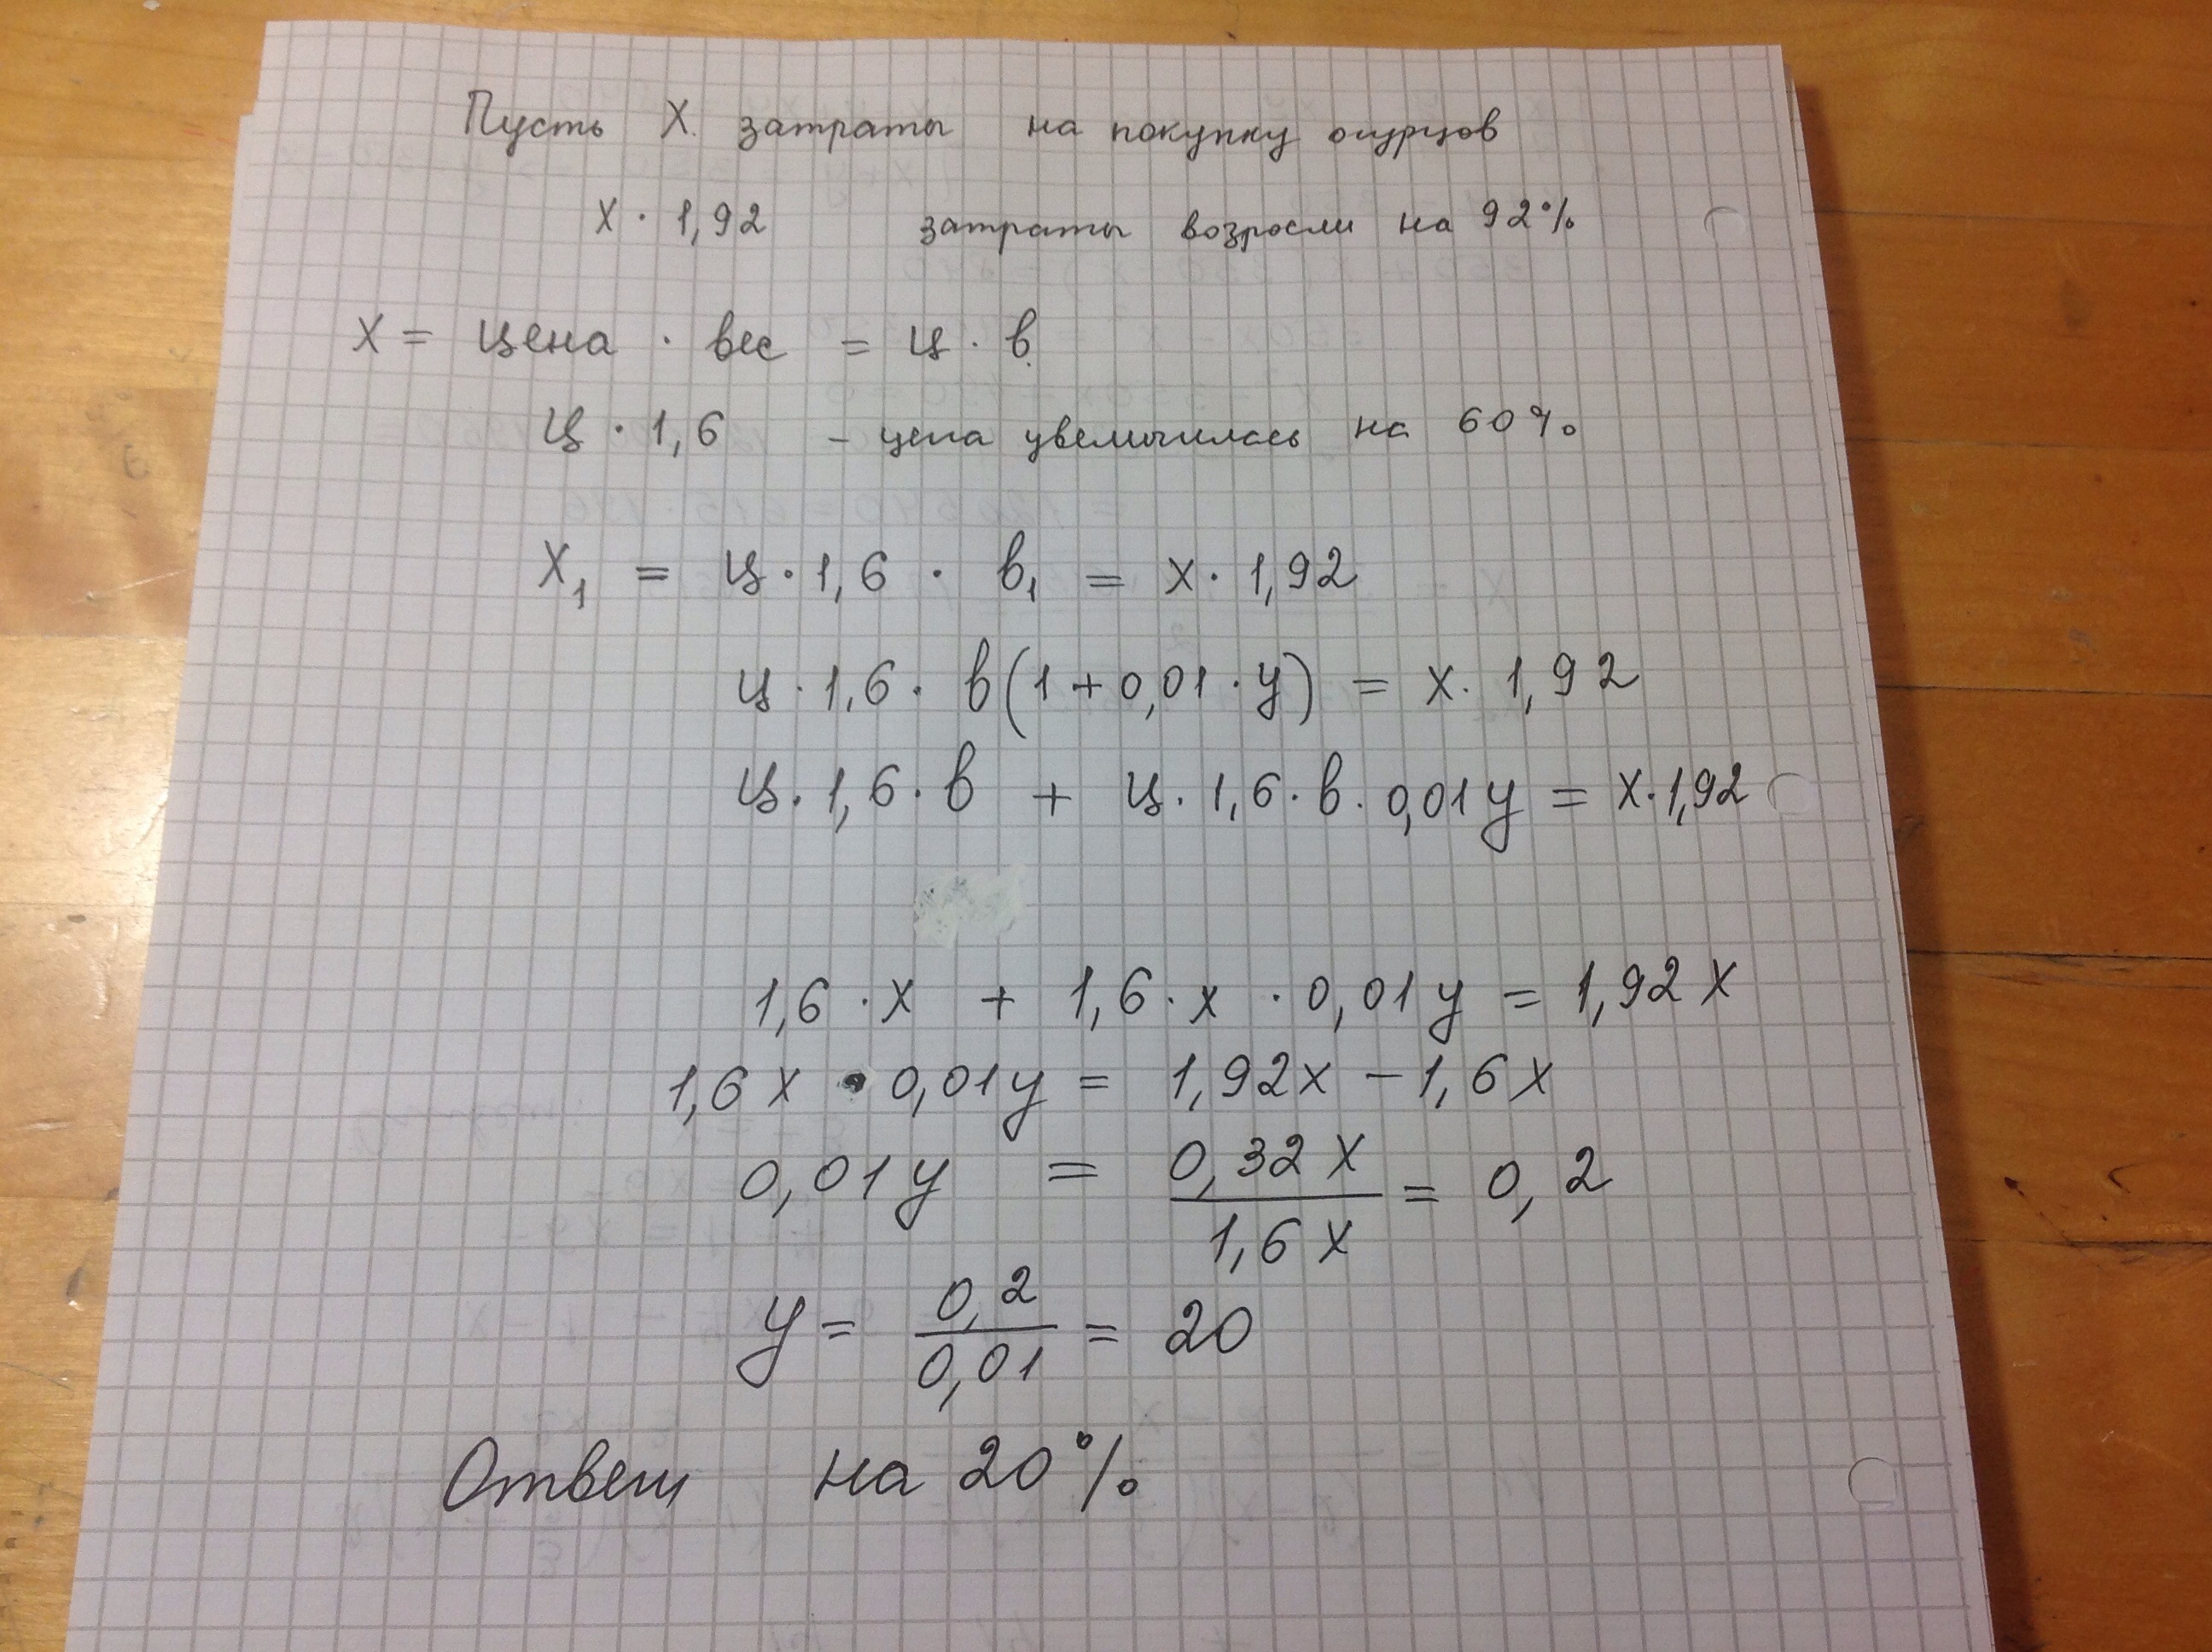 Пусть X. затраты на покупку огурцов
X · 1,92 затраты возросли на 92%
X = цена · вес = ц · в.
Ц · 1,6 – цена увеличилась на 60%
X₁ = ц · 1,6 · в₁ = x · 1,92
ц · 1,6 · в(1 + 0,01 · y) = x · 1,92
ц · 1,6 · в + ц · 1,6 · в · 0,01y = x · 1,92
1,6 · x + 1,6 · x · 0,01y = 1,92x
1,6x · 0,01y = 1,92x – 1,6x
0,01y = 0,32x / 1,6x = 0,2
y = 0,2 / 0,01 = 20
Ответ на 20%